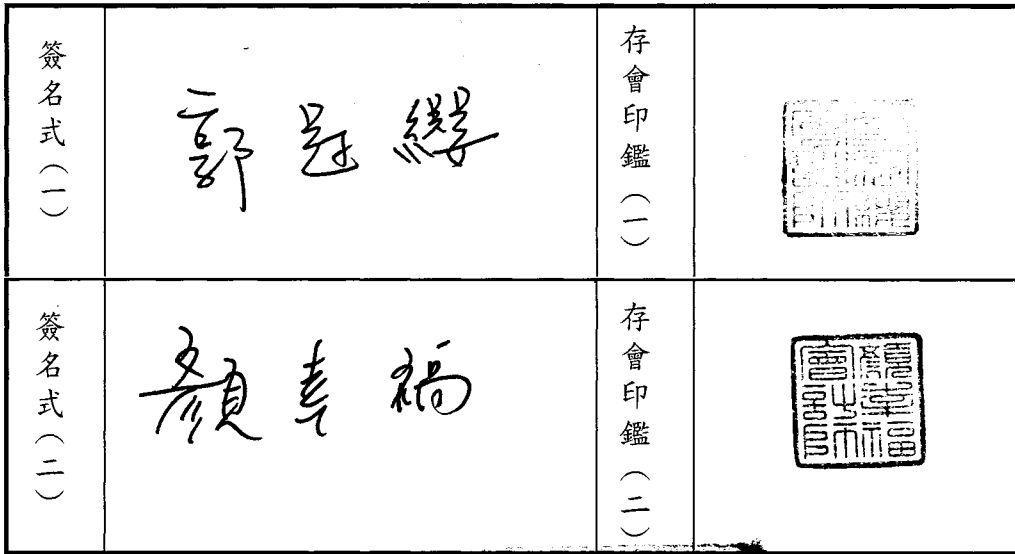 簽名式(一)
郭冠纓
存會印鑑(一)
簽名式(二)
顏幸福
存會印鑑(二)
顏幸福
會計師
印